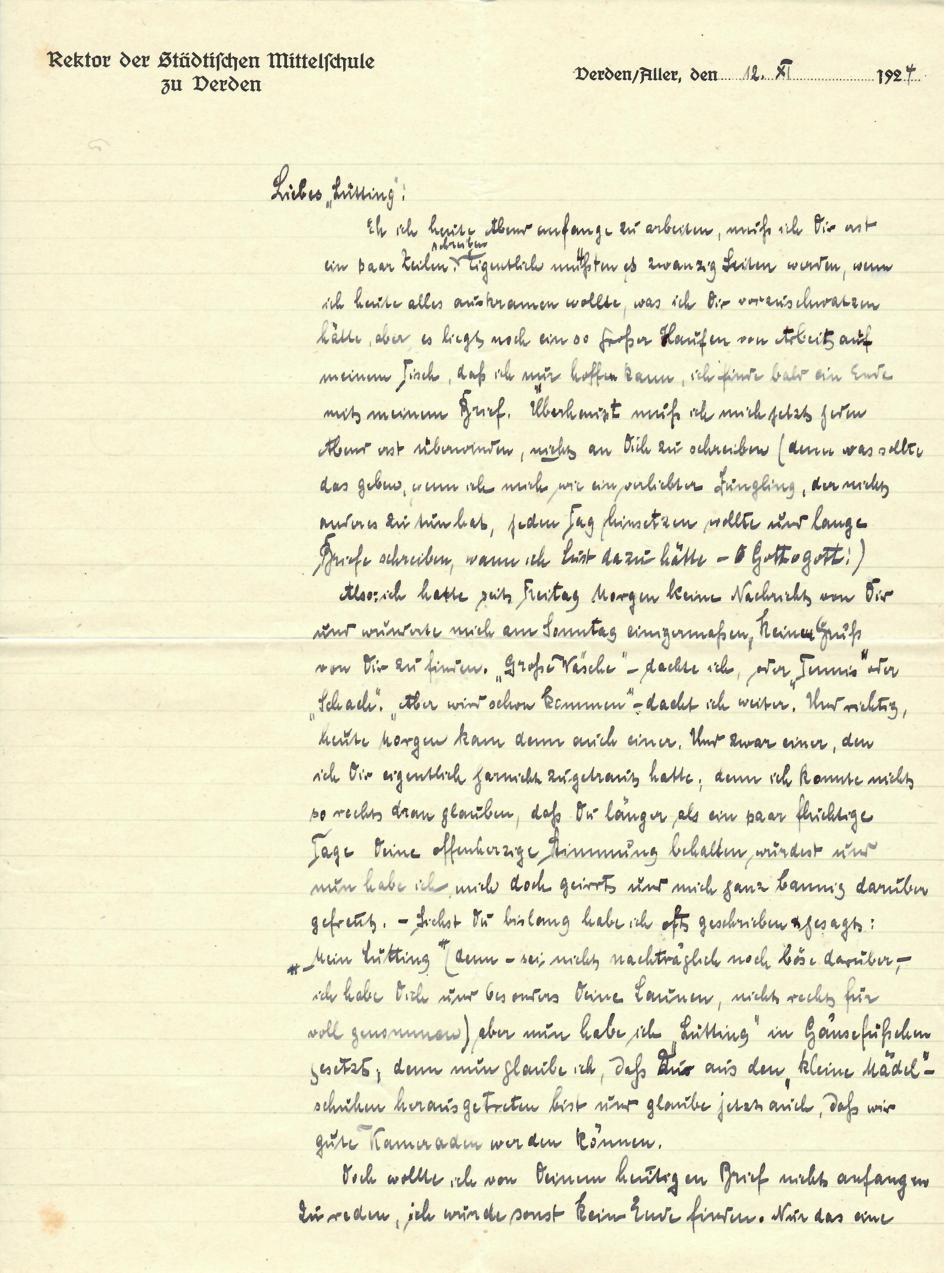 Rektor der Städtischen Mittelschule
zu Verden
Verden/Aller, den 12. XI 1924
Liebes „Lütting"!
Eh ich heute Abend anfange zu arbeiten, muß ich Dir erst
ein paar Zeilen schreiben. Eigentlich müßten es zwanzig Seiten werden, wenn
ich heute alles auskramen wollte, was ich Dir vorzuschwatzen
hätte, aber es liegt noch ein so großer Haufen von Arbeit auf
meinem Tisch, daß ich nur hoffen kann, ich finde bald ein Ende
mit meinem Brief. Überhaupt muß ich mich jetzt jeden
Abend erst überwinden, nicht an Dich zu schreiben (denn was sollte
das geben, wenn ich mich wie ein verliebter Jüngling, der nichts
anderes zu tun hat, jeden Tag hinsetzen wollte und lange
Briefe schreiben, wann ich Lust dazu hätte – O Gottogott!)
Also: ich hatte seit Freitag Morgen keine Nachricht von Dir
und wunderte mich am Sonntag einigermaßen, keinen Gruß
von Dir zu finden. „Große Wäsche" – dachte ich, oder „Tennis" oder
„Schach". „Aber wird schon kommen" – dacht ich weiter. Und richtig,
heute Morgen kam denn auch einer. Und zwar einer, den
ich Dir eigentlich garnicht zugetraut hatte; denn ich konnte nicht
so recht dran glauben, daß Du länger als ein paar flüchtige
Tage Deine offenherzige Stimmung behalten würdest und
nun habe ich mich doch geirrt und mich ganz bannig darüber
gefreut. – Siehst Du bislang habe ich oft geschrieben & gesagt:
„Mein Lütting" (denn – sei nicht nachträglich noch böse darüber, –
ich habe Dich und besonders Deine Launen, nicht recht für
voll genommen) aber nun habe ich „Lütting" in Gänsefüßchen
gesetzt; denn nun glaube ich, daß Du aus den „kleine Mädel"-
schuhen herausgetreten bist und glaube jetzt auch, daß wir
gute Kameraden werden können.
Doch wollte ich von Deinem heutigen Brief nicht anfangen
zu reden, ich würde sonst kein Ende finden. Nur das eine